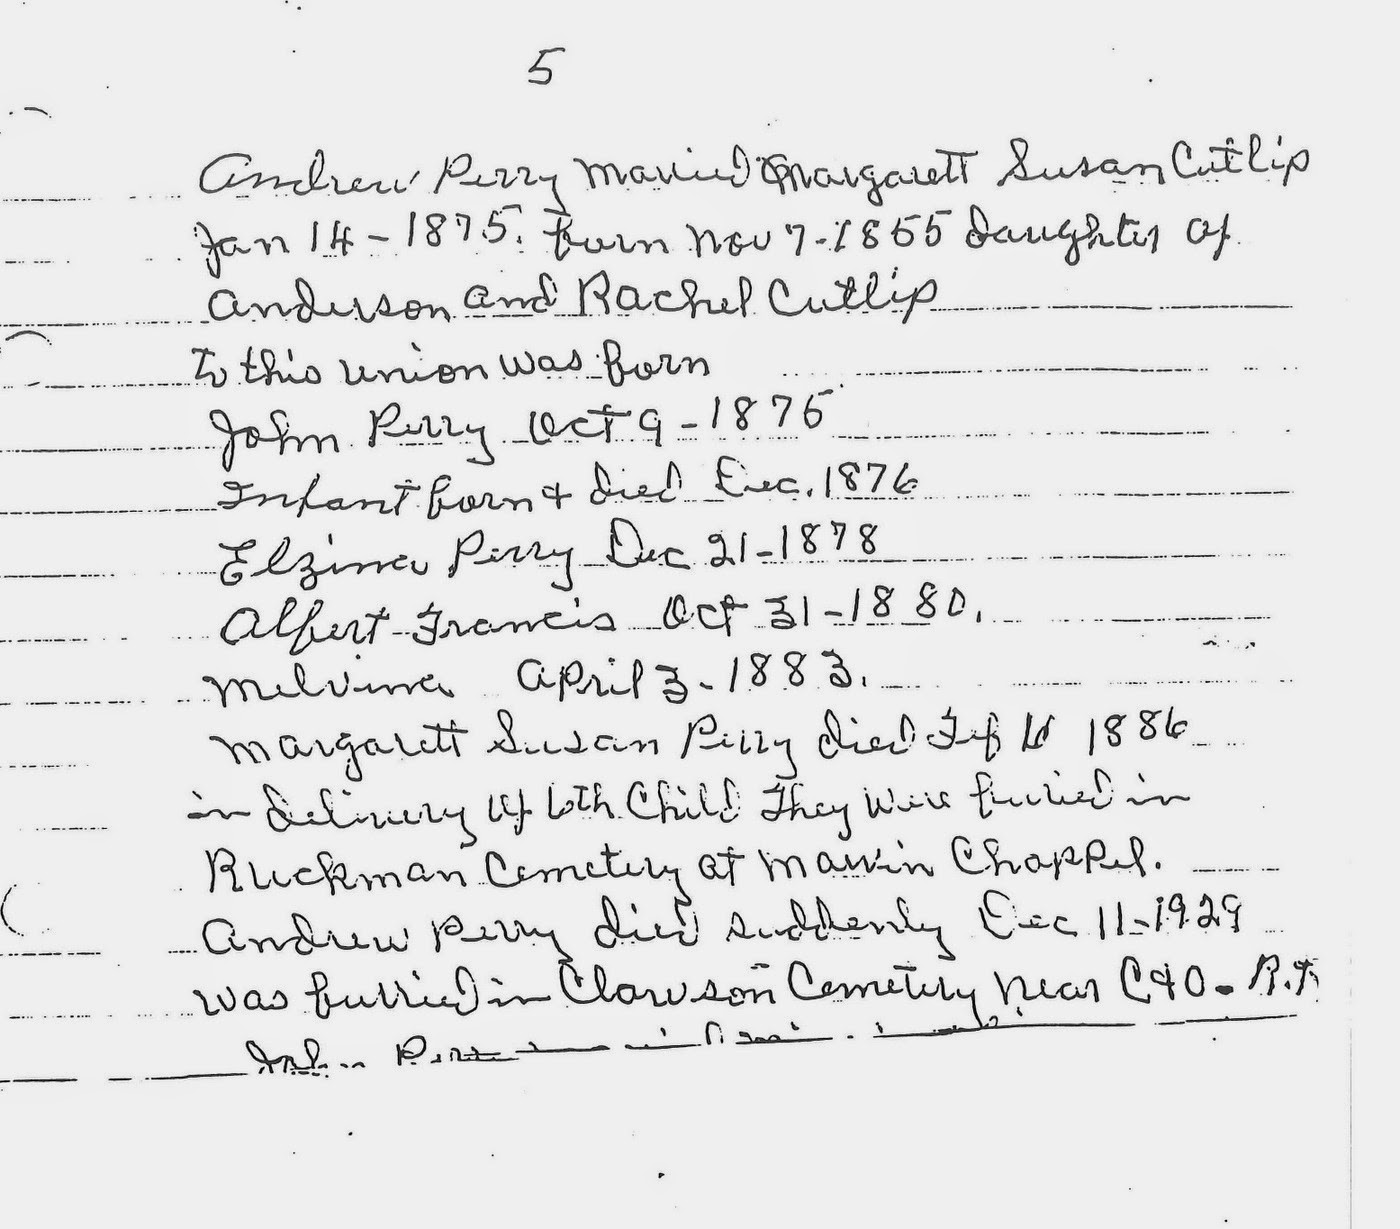 5
Andrew Perry Married Margarett Susan Cutlip
Jan 14 - 1875. born Nov 7 - 1855 daughter of
Anderson and Rachel Cutlip
to this union was born
John Perry Oct 9 - 1875
Infant born & died Dec. 1876
Elzina Perry Dec 21 - 1878
Albert Francis Oct 31 - 1880.
Melvina April 3 - 1883.
Margarett Susan Perry died Feb 1886
in delivery of 6th Child They were buried in
Ruckman Cemetery at Marvin Chappel.
Andrew Perry died suddenly Dec 11 - 1929
was burried in Clawson Cemetery near C & O - R.R
John Perry